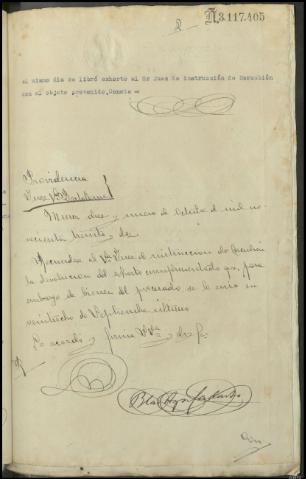 N3.117.405
2
el mismo dia se libró exhorto al Sr Juez de instrucción de
con el objeto prevenido, Consta =
Providencia
Juez Sr.
Murcia diez y nueve de Octubre de mil no
vecientos treinta y dos
Recuerdese al Sr. Juez de instruccion de
la devolucion del exhorto cumplimentado que para
embargo de bienes del procesado se le curso en
veintiocho de Septiembre ultimo
Lo acordó y firma S.Sª, doy fe.